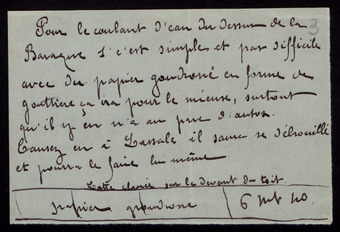 Pour le coulant d'eau du dessus de la
3
Baraque 1 c'est simple et pas difficile
avec du papier goudronné en forme de
gouttière ça ira pour le mieux, surtout
qu'il y en a au parc d'autos.
Causez en à Lassale il saura se débrouillé
et pourra le faire lui même
Latte clouée sur le devant du toit
papier goudronné 6 m 40